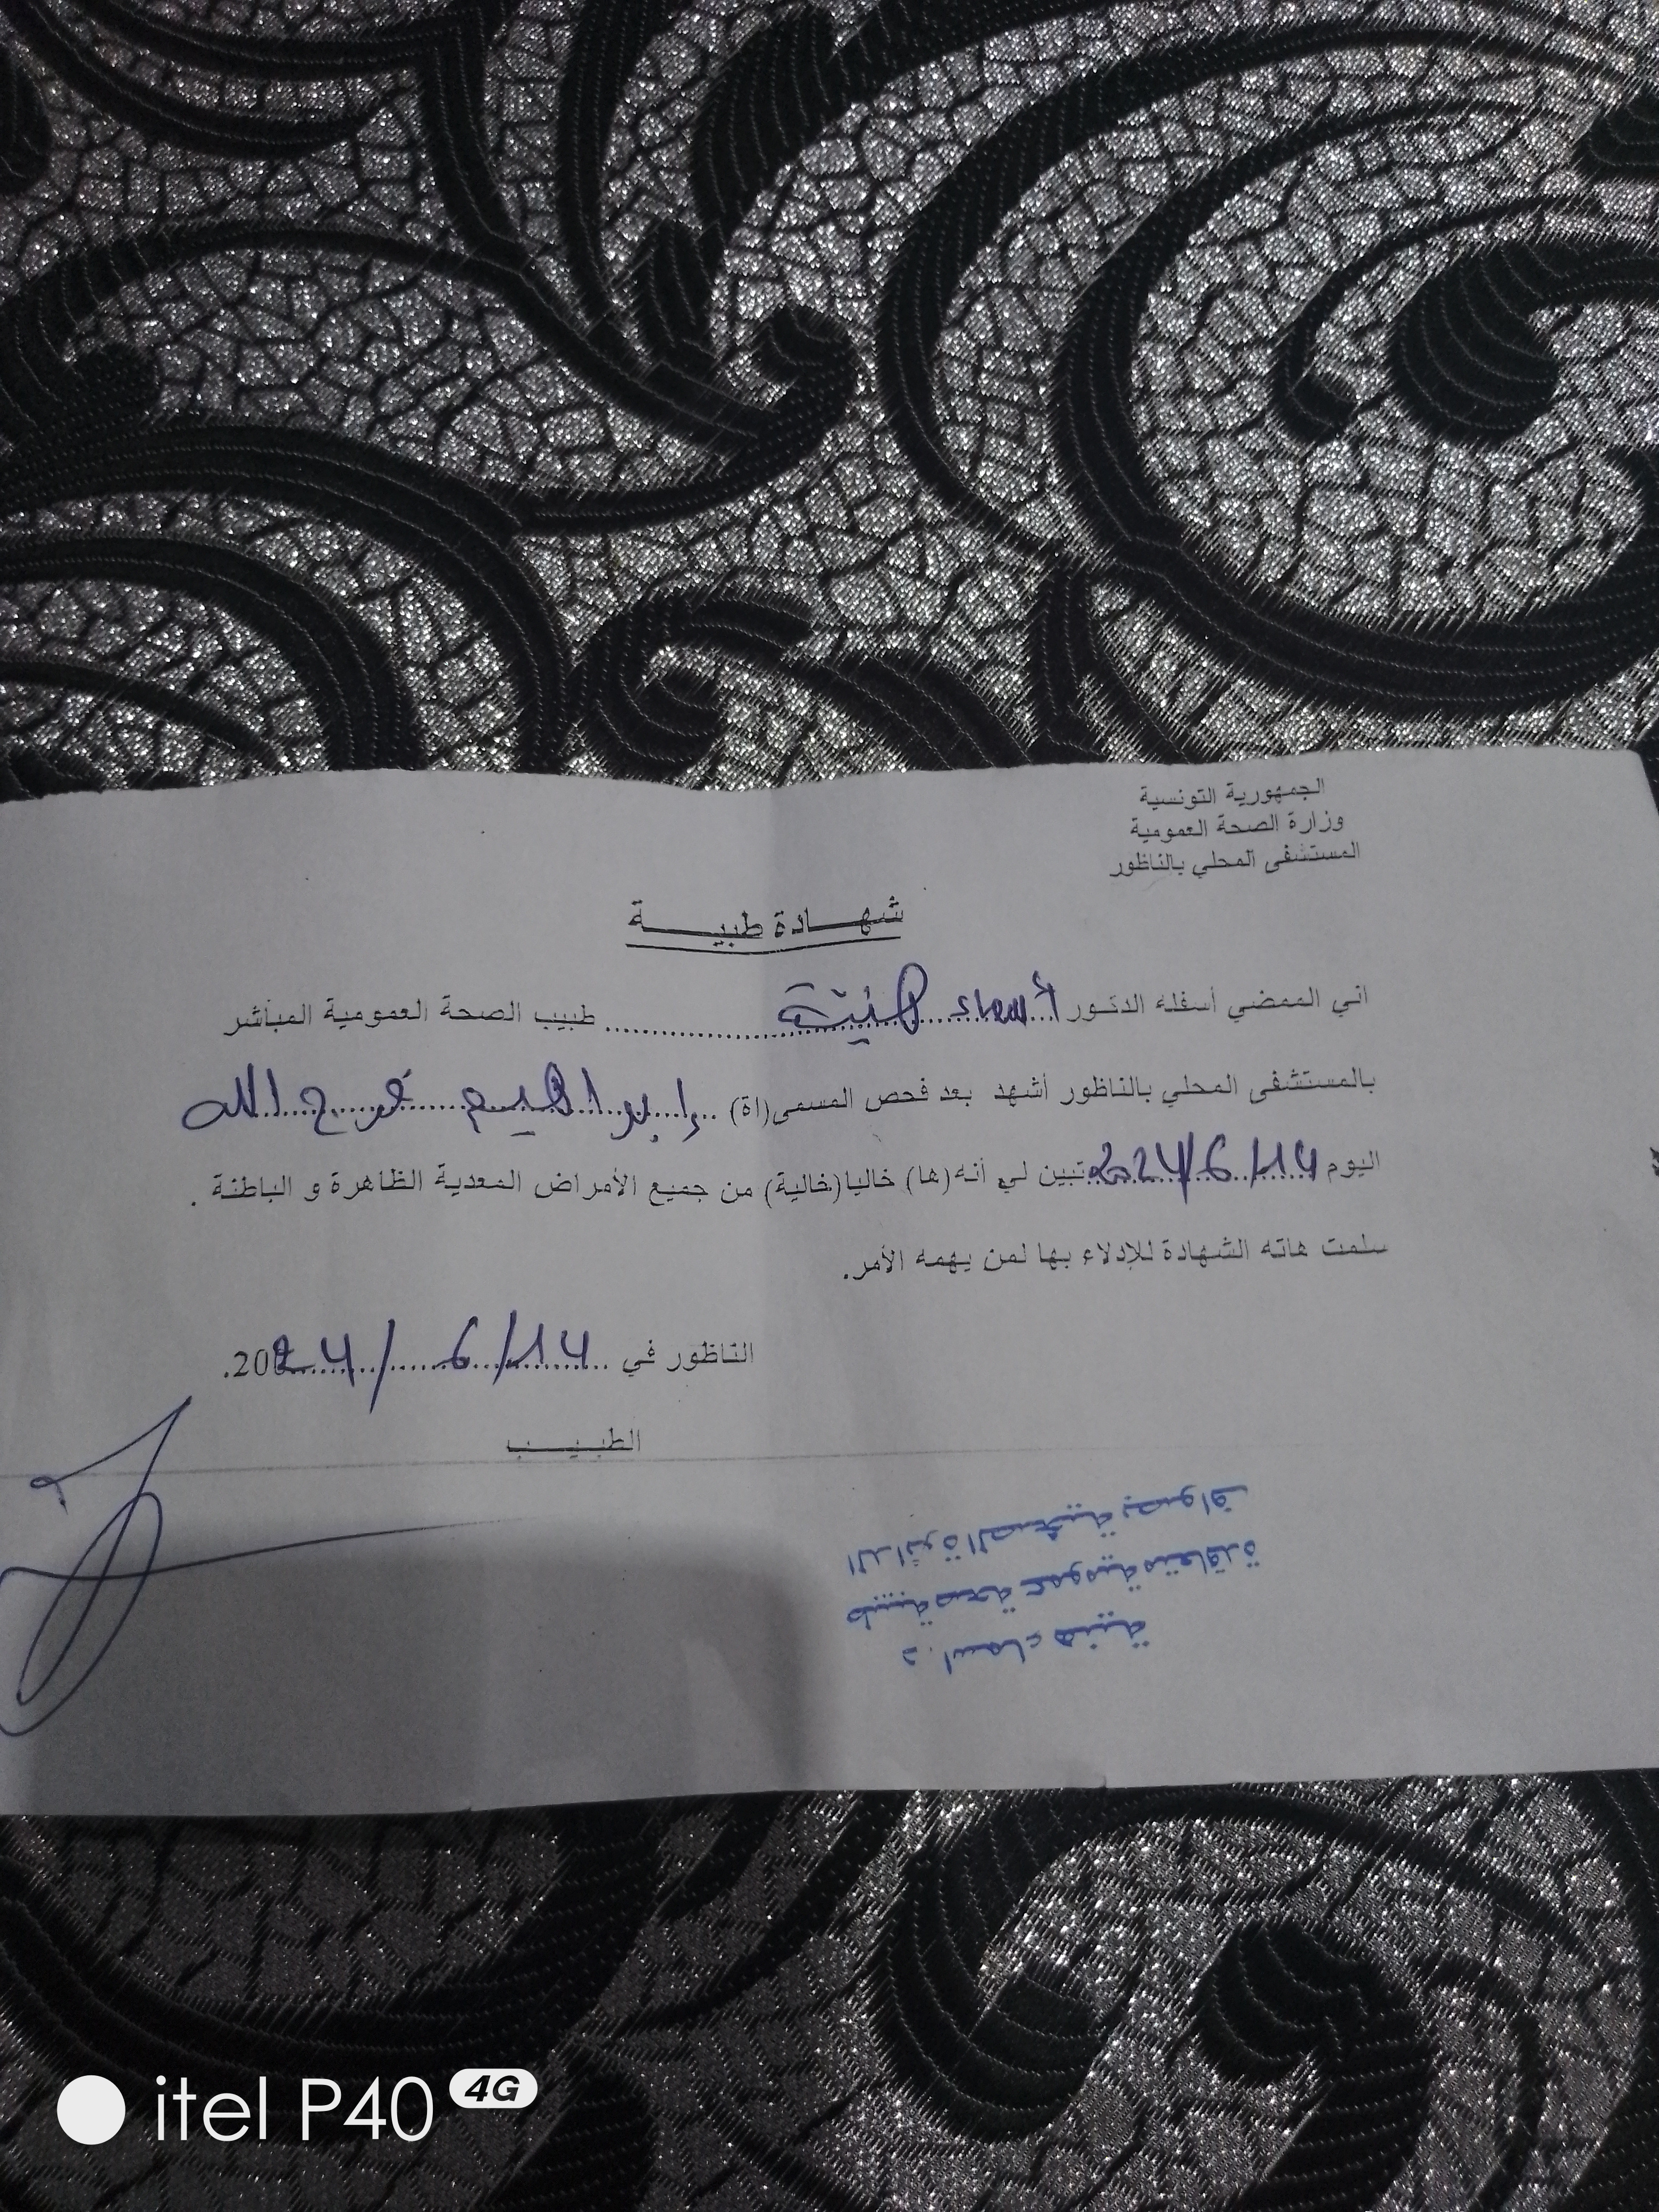 الجمهورية التونسية
وزارة الصحة العمومية
المستشفى المحلي بالناظور
شهـــادة طبيـــة
اني الممضي أسفله الدكتور أسماء هنية طبيب الصحة العمومية المباشر
بالمستشفى المحلي بالناظور أشهد بعد فحص المسمى(اة) إبراهيم فرح الله
اليوم 2024/6/14 تبين لي أنه(ها) خاليا(خالية) من جميع الأمراض المعدية الظاهرة و الباطنة .
سلمت هاته الشهادة للإدلاء بها لمن يهمه الأمر.
الناظور في 14/6/2024.
الطبيـــب
د. اسماء هنية
طبيبة صحة عمومية متعاقدة
الدائرة الصحية بصواف
itel P40 4G